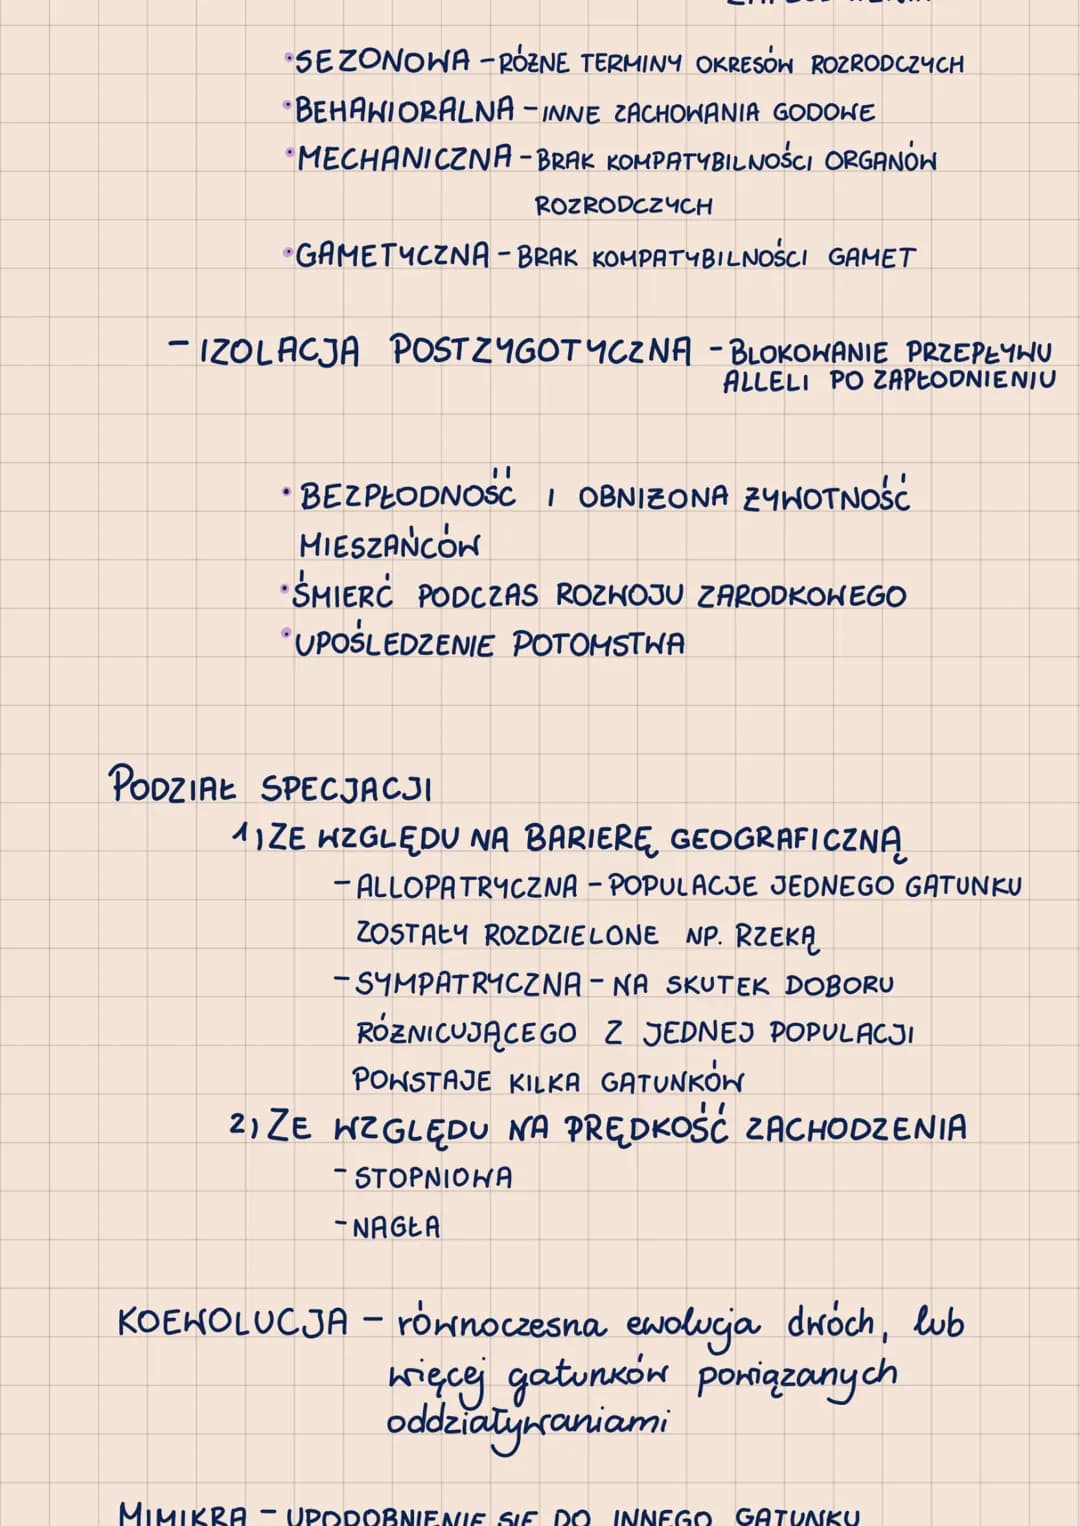 •SEZONOWA – RÓŻNE TERMINY OKRESÓW ROZRODCZYCH
•BEHAWIORALNA – INNE ZACHOWANIA GODOWE
•MECHANICZNA – BRAK KOMPATYBILNOŚCI ORGANÓW
ROZRODCZYCH
•GAMETYCZNA – BRAK KOMPATYBILNOŚCI GAMET
– IZOLACJA POSTZYGOTYCZNA – BLOKOWANIE PRZEPŁYWU
ALLELI PO ZAPŁODNIENIU
• BEZPŁODNOŚĆ I OBNIŻONA ŻYWOTNOŚĆ
MIESZAŃCÓW
•ŚMIERĆ PODCZAS ROZWOJU ZARODKOWEGO
•UPOŚLEDZENIE POTOMSTWA
PODZIAŁ SPECJACJI
1) ZE WZGLĘDU NA BARIERĘ GEOGRAFICZNĄ
– ALLOPATRYCZNA – POPULACJE JEDNEGO GATUNKU
ZOSTAŁY ROZDZIELONE NP. RZEKĄ
– SYMPATRYCZNA – NA SKUTEK DOBORU
RÓŻNICUJĄCEGO Z JEDNEJ POPULACJI
POWSTAJE KILKA GATUNKÓW
2) ZE WZGLĘDU NA PRĘDKOŚĆ ZACHODZENIA
– STOPNIOWA
– NAGŁA
KOEWOLUCJA – równoczesna ewolucja dwóch, lub
więcej gatunków powiązanych
oddziaływaniami
MIMIKRA – UPODOBNIENIE SIĘ DO INNEGO GATUNKU